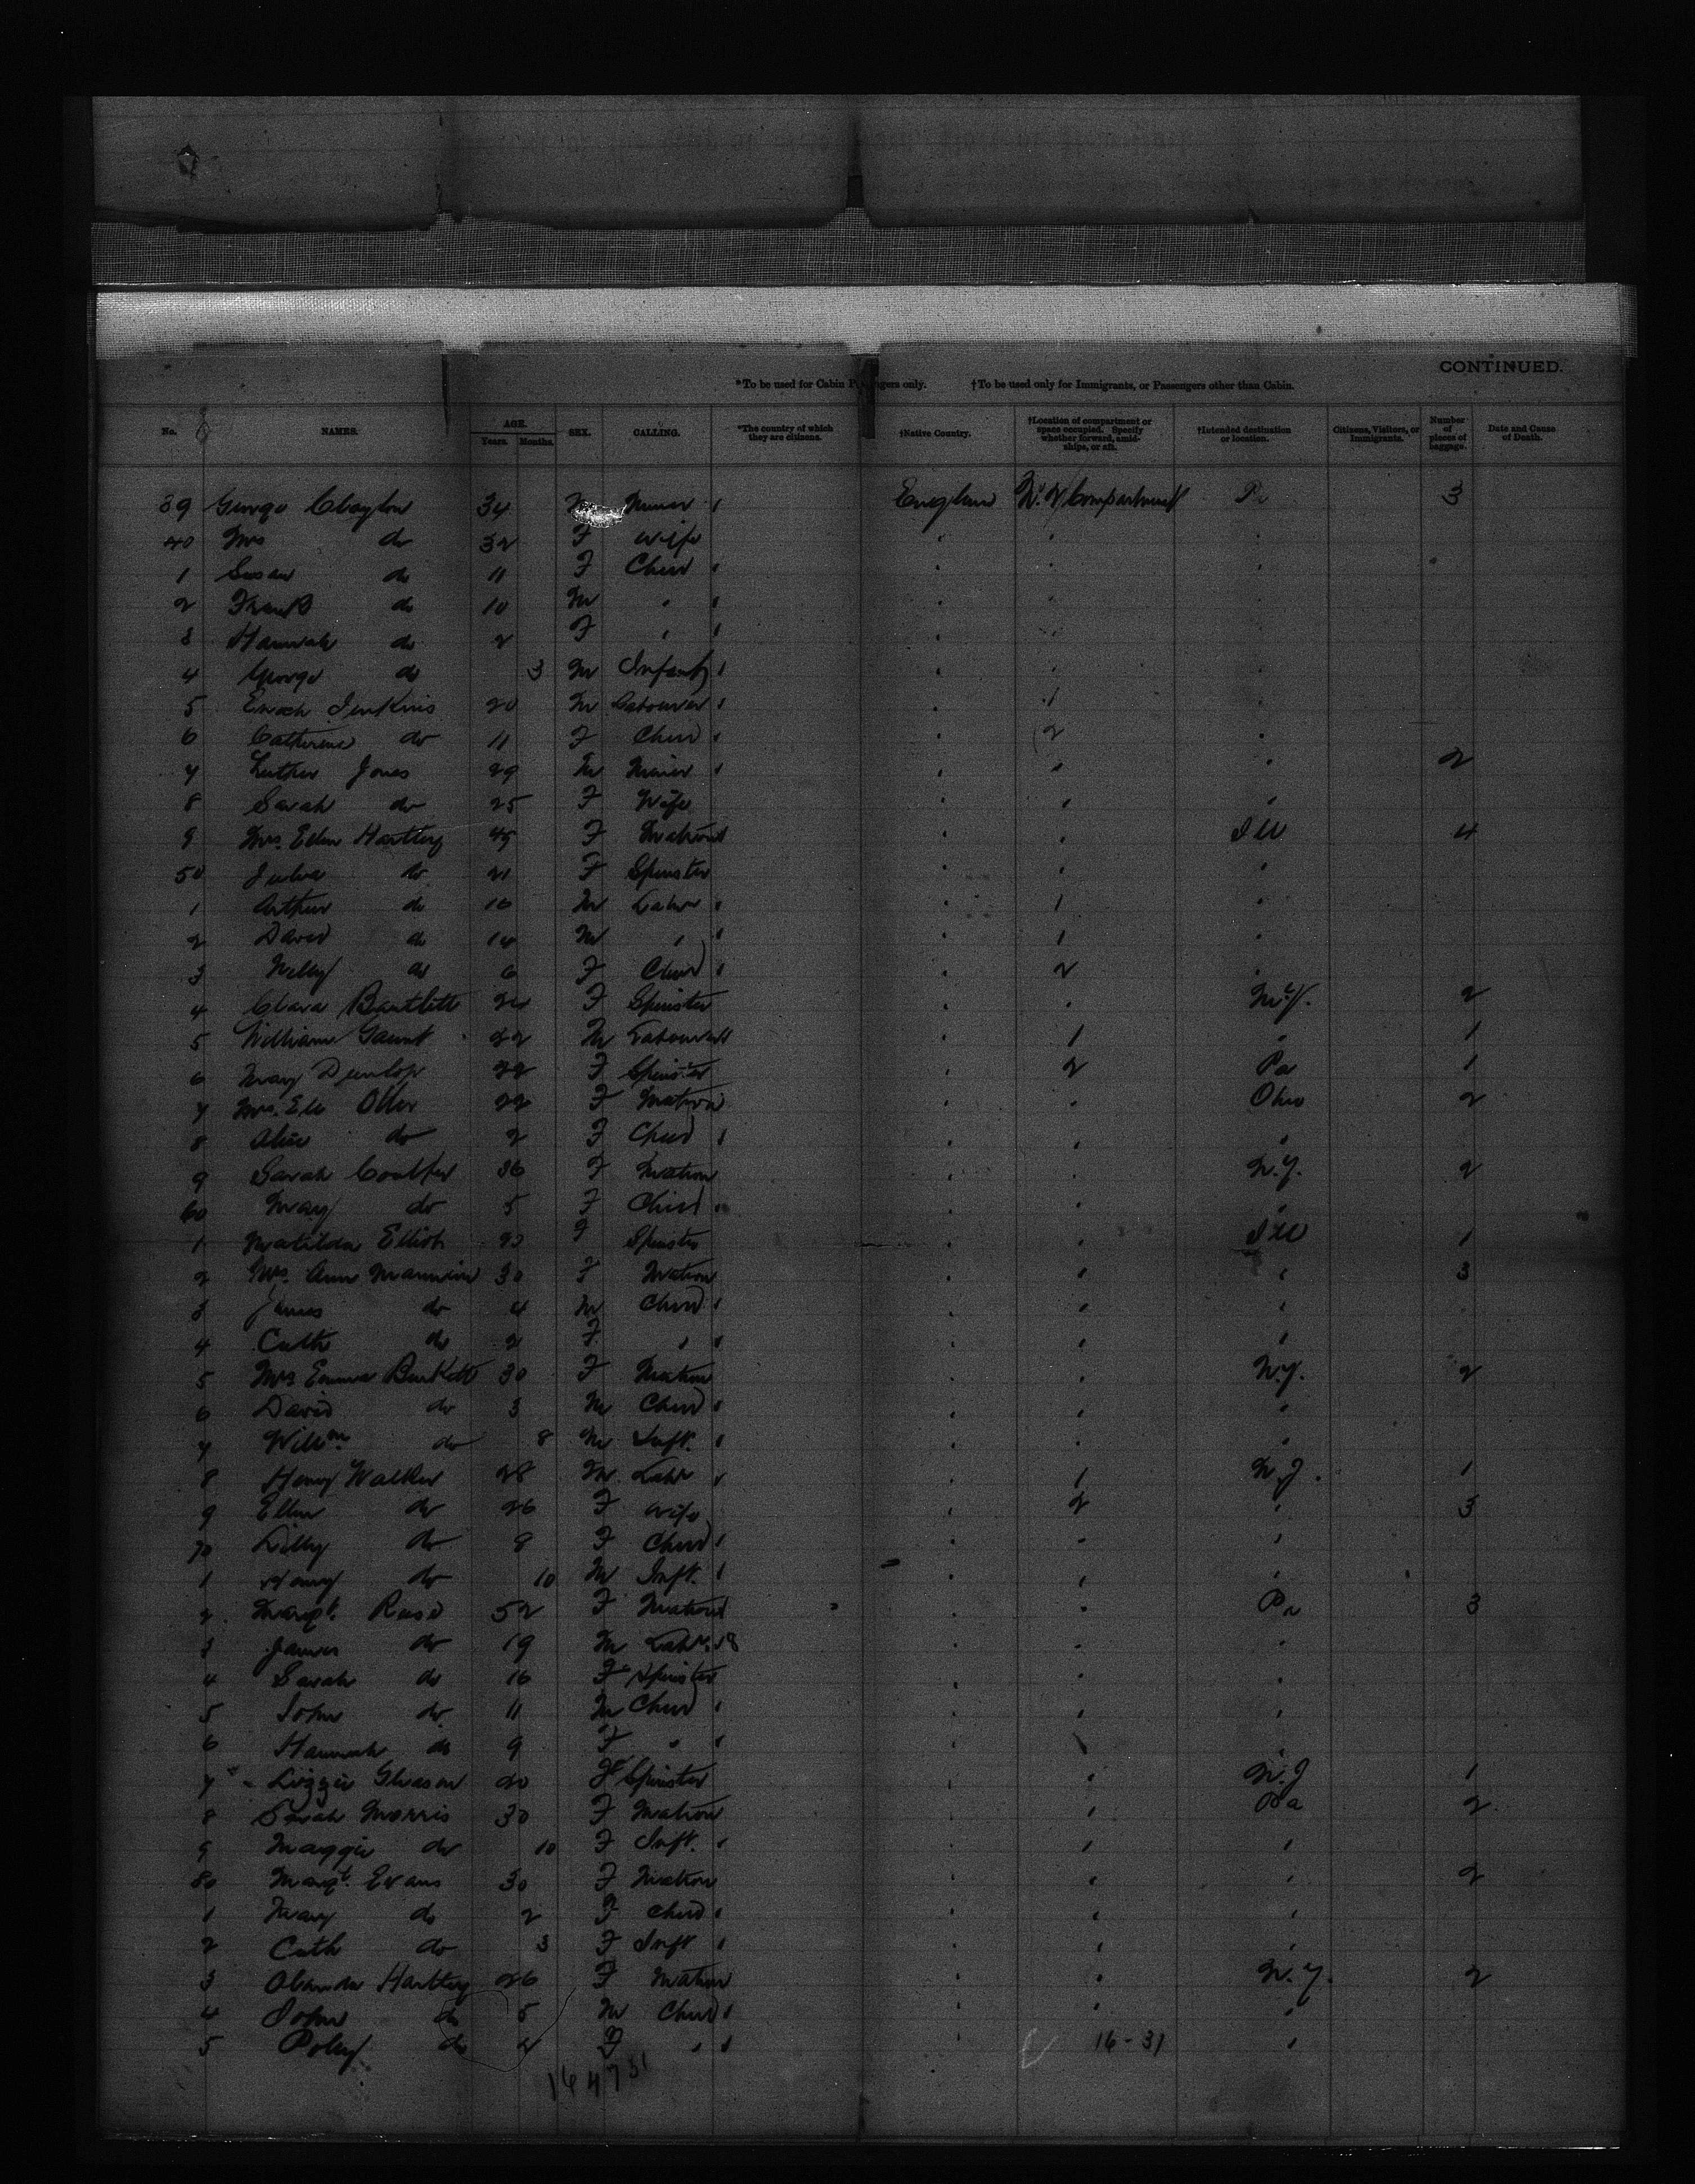 CONTINUED.
*To be used for Cabin Passengers only. †To be used only for Immigrants, or Passengers other than Cabin.
No. NAMES. AGE. Years. Months. SEX. CALLING. *The country of which they are citizens. †Native Country. †Location of compartment or space occupied. Specify whether forward, amidships, or aft. †Intended destination or location. Citizens, Visitors, or Immigrants. Number of pieces of baggage. Date and Cause of Death.
39 George Clayton 34 M Miner England No. 2 Compartment Pa 3
40 Mrs do 32 F Wife
1 Susan do 11 F Child
2 Frank do 10 M "
3 Hannah do 2 F "
4 George do 3 M Infant
5 Enoch Jenkins 20 M Labourer 1
6 Catherine do 11 F Child 2
7 Luther Jones 29 M Miner 2
8 Sarah do 25 F Wife
9 Mrs. Ellen Hartley 45 F Matron Ill 4
50 Julia do 21 F Spinster
1 Arthur do 16 M Labr 1
2 David do 14 M " 1
3 Nelly do 6 F Child 2
4 Clara Bartlett 24 F Spinster N.Y. 2
5 William Gaunt 22 M Labourer 1 " 1
6 Mary Dunlop 22 F Spinster 2 Pa 1
7 Mrs. Otter 22 F Matron Ohio 2
8 Alice do 2 F Child
9 Sarah 36 F Matron N.Y. 2
60 May do 5 F Child
1 Matilda Elliot F Spinster Ill 1
2 Mrs. Ann 30 F Matron " 3
3 James do 4 M Child
4 Cath do 2 F "
5 Mrs Emma Burkett 30 F Matron N.Y. 2
6 David do 3 M Child
7 Willm do 8 M Inft.
8 Henry Walker 28 M Labr 1 N.J. 1
9 Ellen do 26 F Wife 2 " 3
70 Lilly do 9 F Child
1 Harry do 10 M Inft.
2 Margt. Rose 52 F Matron Pa 3
3 James do 19 M Labr. 18
4 Sarah do 16 F Spinster
5 John do 11 M Child
6 Hannah do 9 F "
7 Lizzie Gleason 20 F Spinster N.J 1
8 Sarah Morris 30 F Matron Pa 2
9 Maggie do 10 F Inft.
80 Margt. Evans 30 F Matron " 2
1 Mary do 2 F Child
2 Cath do 3 F Inft
3 Hartley 26 F Matron N.Y. 2
4 John do 5 M Child
5 do F " 16-31